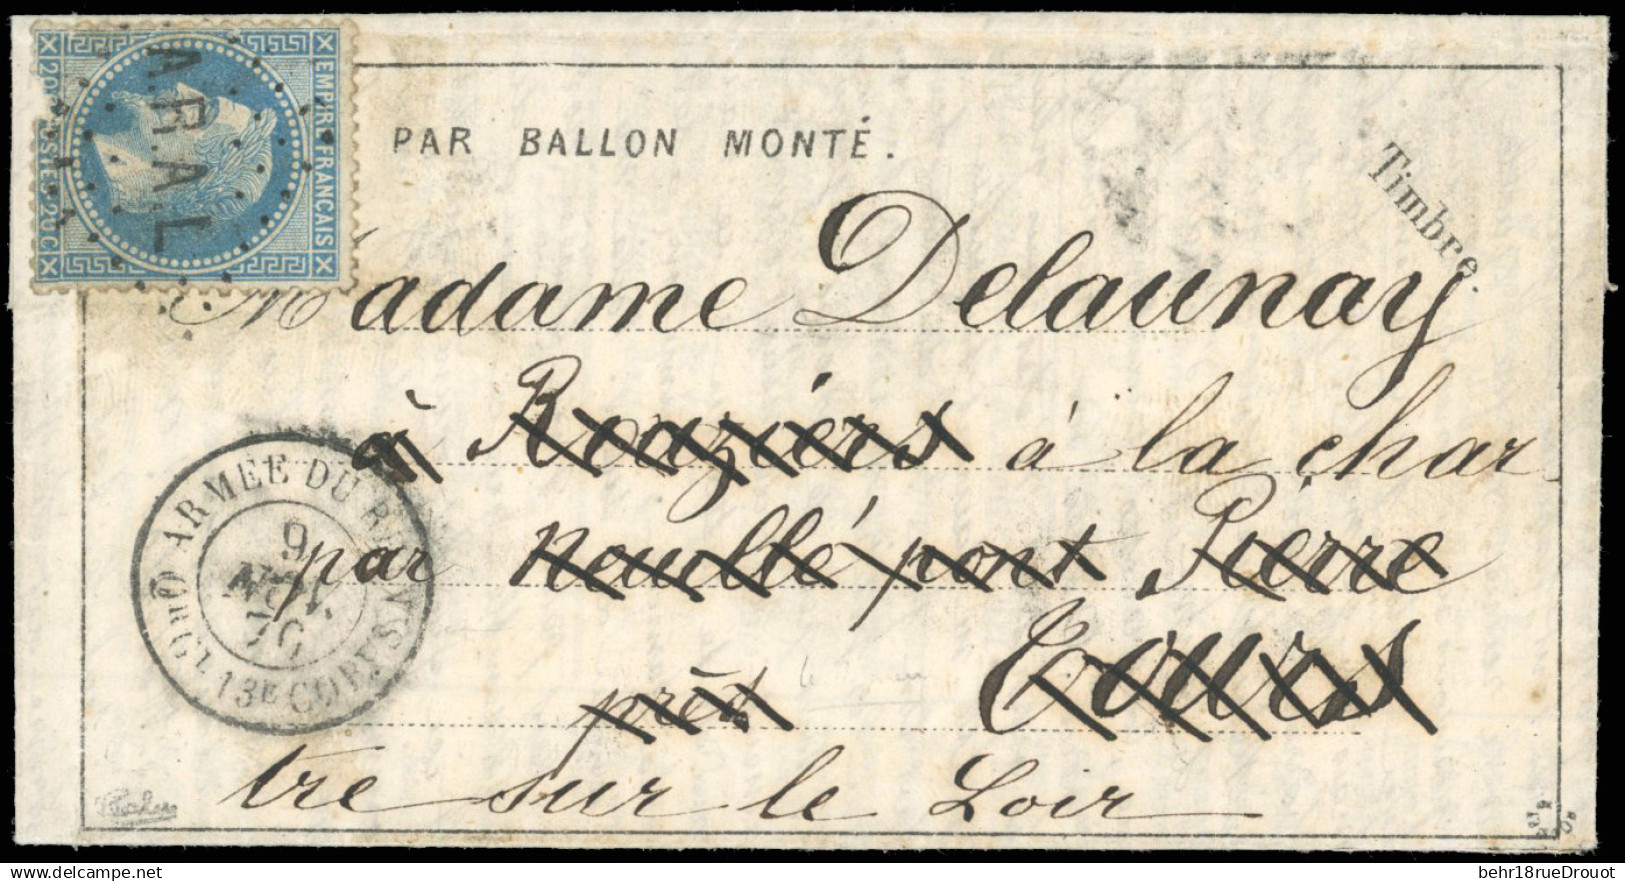 EMPIRE FRANCAIS
20 C POSTES 20 C
A.R.A.L
PAR BALLON MONTÉ.
Timbre.
Madame Delaunay
à Rouziers à la char
par Neuillé pont Pierre
près Tours
tre sur le Loir
QR GL 13E CORPS ARMÉE DU RHIN
9
NOV.
70
Calves
behr18rueDrouot